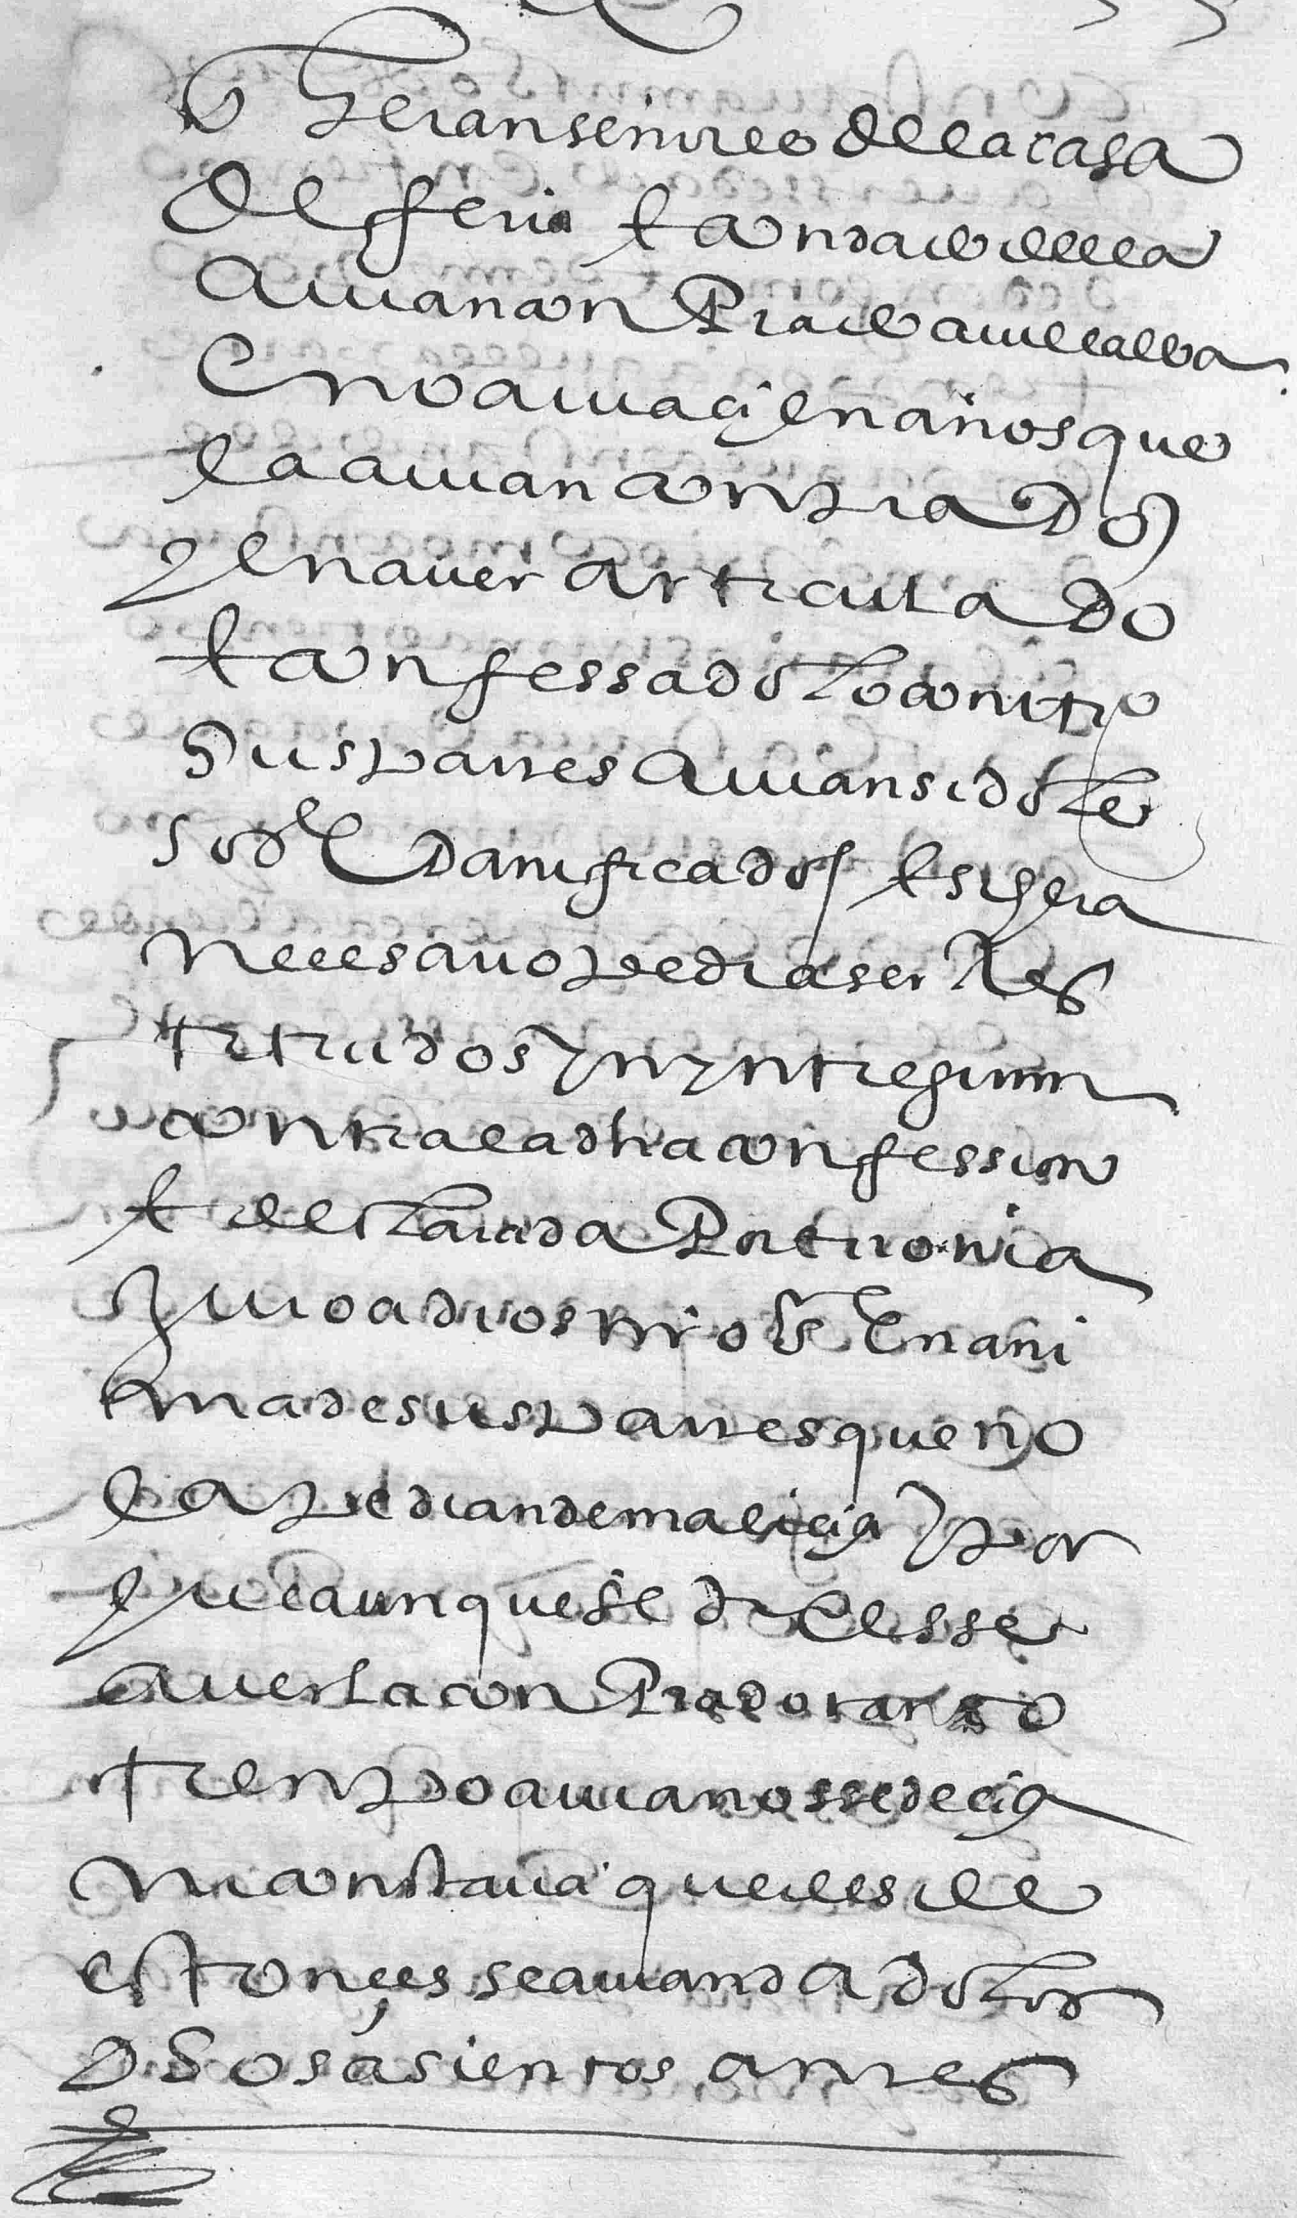 y heran señores de la casa
de feria y con dacion della
avian conprado a villalva
e no avia cien años que
la avian conprado
y en aver articulado
y confessado lo contrº
sus partes avian sido le
sos e danificados y si hera
necesario pedia ser Res
tetuidos yn yntregum
contra la dha confession
y declarada por erronia
y juro a dios nrº sr en ani
ma de sus partes que no
la pedian de malicia y por
que aunque se dixesse
averla conprado tanto
tienpo avia no sse decia
ni constava que desde
estonces se avian dado los
dhos asientos antes